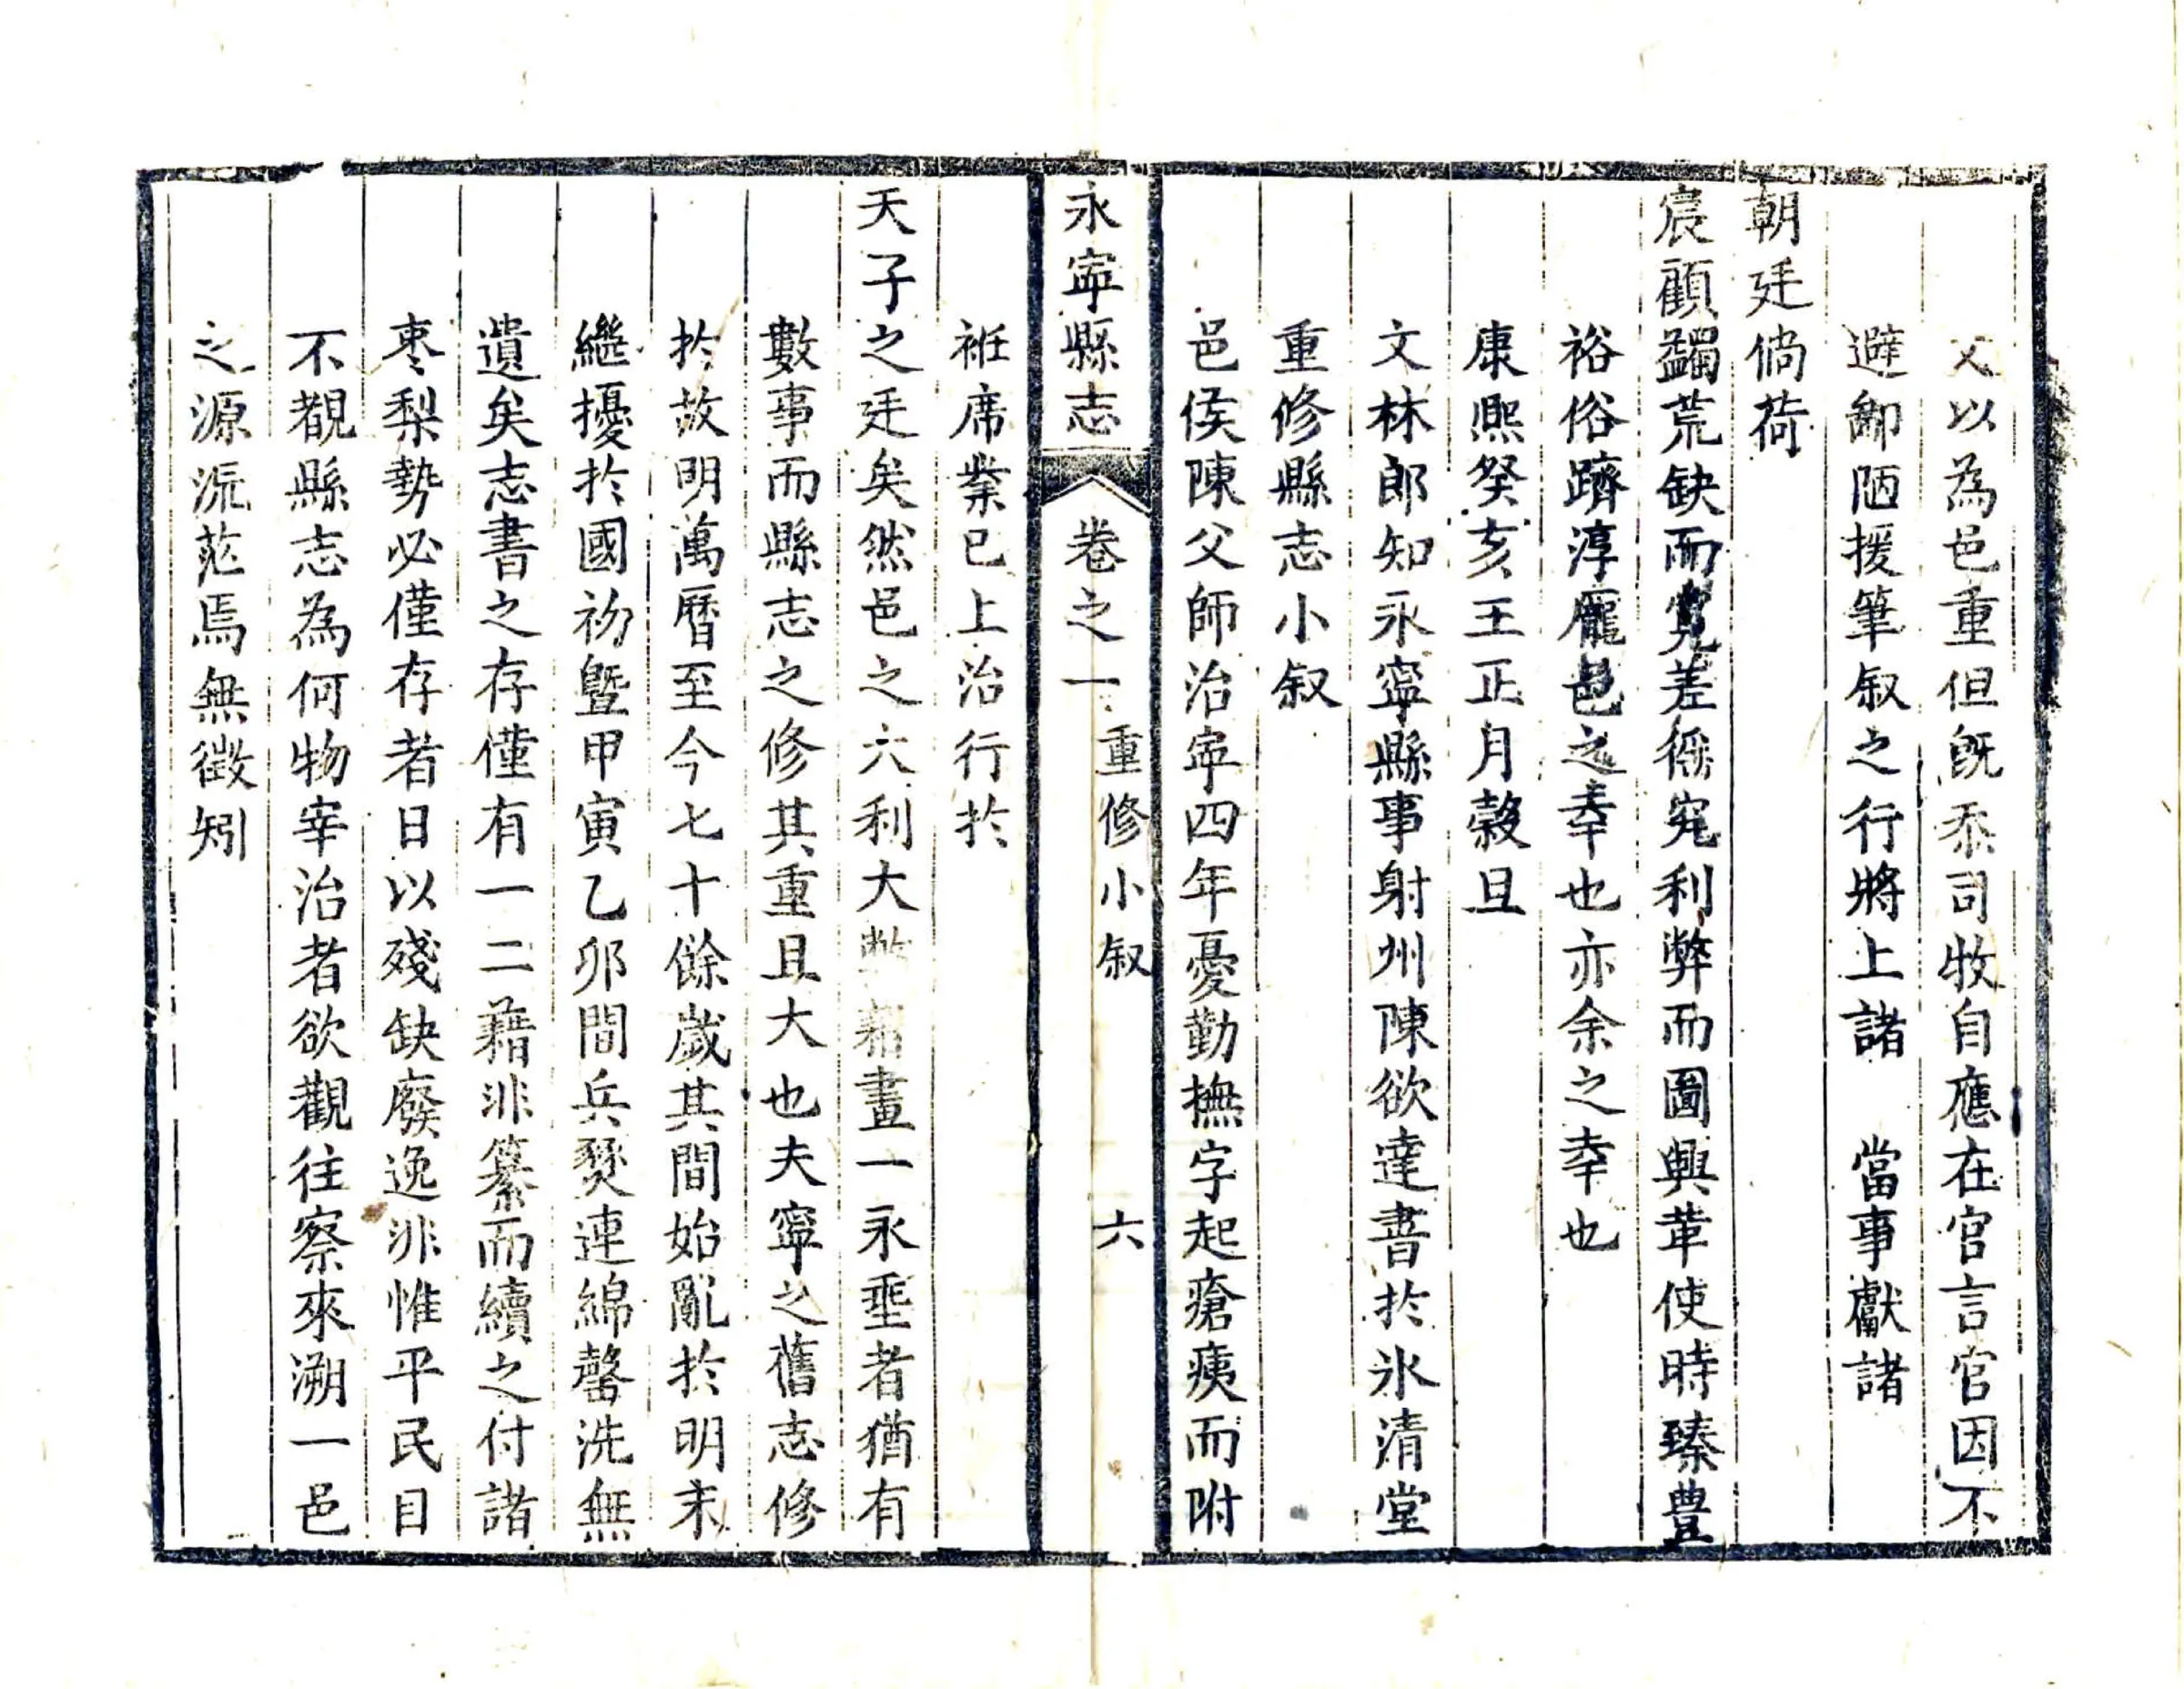 又以為邑重但旣忝司牧自應在官言官因不
避鄙陋援筆叙之行將上諸　當事獻諸
朝廷倘荷
宸顧蠲荒缺而寬差徭究利弊而圖興革使時臻豊
裕俗躋淳龐邑之幸也亦余之幸也
康熙癸亥王正月榖旦
文林郎知永寧縣事射州陳欲達書於氷清堂
重修縣志小叙
邑侯陳父師治寕四年憂勤撫字起瘡痍而咐
永寕縣志　卷之一　重修小叙　六
袵席業已上治行於
天子之廷矣然邑之六利大弊籍畫一永垂者猶有
數事而縣志之修其重且大也夫寧之舊志修
於故明萬曆至今七十餘歲其間始亂於明末
繼擾於國初曁甲寅乙卯間兵燹連綿罄洗無
遺矣志書之存僅有一二藉非纂而續之付諸
棗梨勢必僅存者日以殘缺廢逸非惟平民目
不覩縣志為何物宰治者欲觀往察來溯一邑
之源流茫焉無徵矧